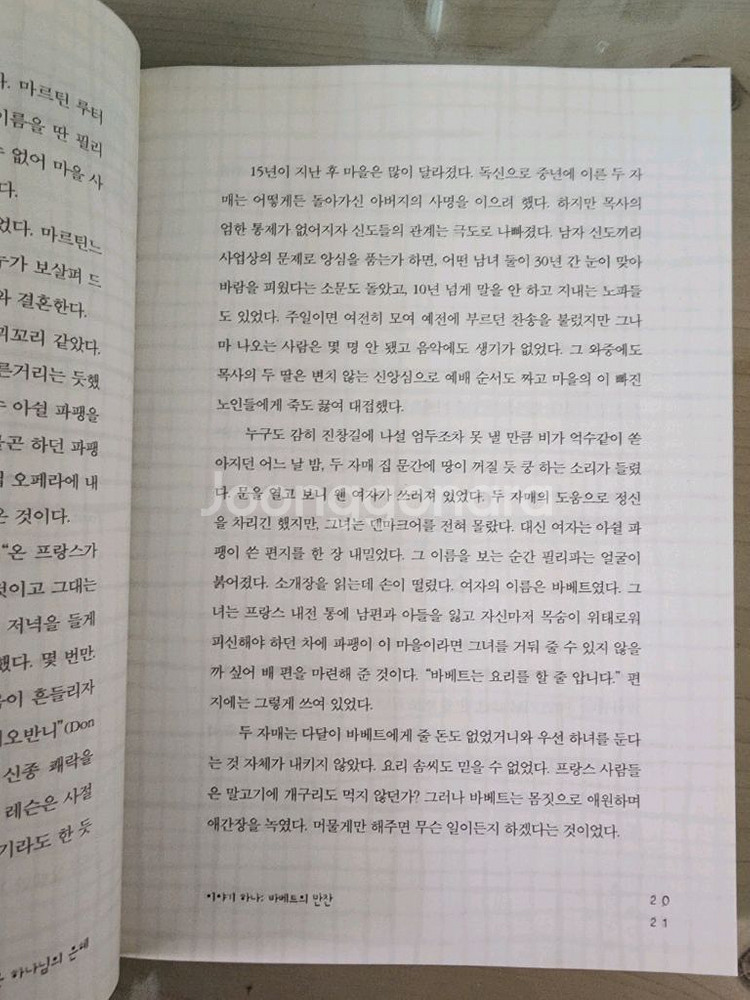 마르틴 루터
이름을 딴 필리
없어 마을 사
다.
었다. 마르틴느
누가 보살펴 드
와 결혼한다.
꾀꼬리 같았다.
른거리는 듯했
아쉴 파팽을
하던 파팽
오페라에 내
은 것이다.
“온 프랑스가
것이고 그대는
저녁을 들게
했다. 몇 번만.
음이 흔들리자
지오반니”(Don
신종 쾌락을
레슨은 사절
기라도 한 듯
하나님의 은혜
15년이 지난 후 마을은 많이 달라졌다. 독신으로 중년에 이른 두 자
매는 어떻게든 돌아가신 아버지의 사명을 이으려 했다. 하지만 목사의
엄한 통제가 없어지자 신도들의 관계는 극도로 나빠졌다. 남자 신도끼리
사업상의 문제로 앙심을 품는가 하면, 어떤 남녀 둘이 30년 간 눈이 맞아
바람을 피웠다는 소문도 돌았고, 10년 넘게 말을 안 하고 지내는 노파들
도 있었다. 주일이면 여전히 모여 예전에 부르던 찬송을 불렀지만 그나
마 나오는 사람은 몇 명 안 됐고 음악에도 생기가 없었다. 그 와중에도
목사의 두 딸은 변치 않는 신앙심으로 예배 순서도 짜고 마을의 이 빠진
노인들에게 죽도 끓여 대접했다.
누구도 감히 진창길에 나설 엄두조차 못 낼 만큼 비가 억수같이 쏟
아지던 어느 날 밤, 두 자매 집 문간에 땅이 꺼질 듯 쿵 하는 소리가 들렸
다. 문을 열고 보니 웬 여자가 쓰러져 있었다. 두 자매의 도움으로 정신
을 차리긴 했지만, 그녀는 덴마크어를 전혀 몰랐다. 대신 여자는 아쉴 파
팽이 쓴 편지를 한 장 내밀었다. 그 이름을 보는 순간 필리파는 얼굴이
붉어졌다. 소개장을 읽는데 손이 떨렸다. 여자의 이름은 바베트였다. 그
녀는 프랑스 내전 통에 남편과 아들을 잃고 자신마저 목숨이 위태로워
피신해야 하던 차에 파팽이 이 마을이라면 그녀를 거둬 줄 수 있지 않을
까 싶어 배 편을 마련해 준 것이다. “바베트는 요리를 할 줄 압니다.” 편
지에는 그렇게 쓰여 있었다.
두 자매는 다달이 바베트에게 줄 돈도 없었거니와 우선 하녀를 둔다
는 것 자체가 내키지 않았다. 요리 솜씨도 믿을 수 없었다. 프랑스 사람들
은 말고기에 개구리도 먹지 않던가? 그러나 바베트는 몸짓으로 애원하며
애간장을 녹였다. 머물게만 해주면 무슨 일이든지 하겠다는 것이었다.
이야기 하나: 바베트의 만찬
20
21
Joonggonara